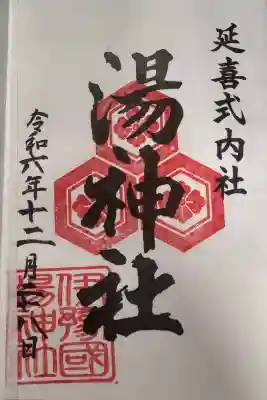 延喜式内社
湯神社
令和六年十二月二八日
伊豫國
湯神社